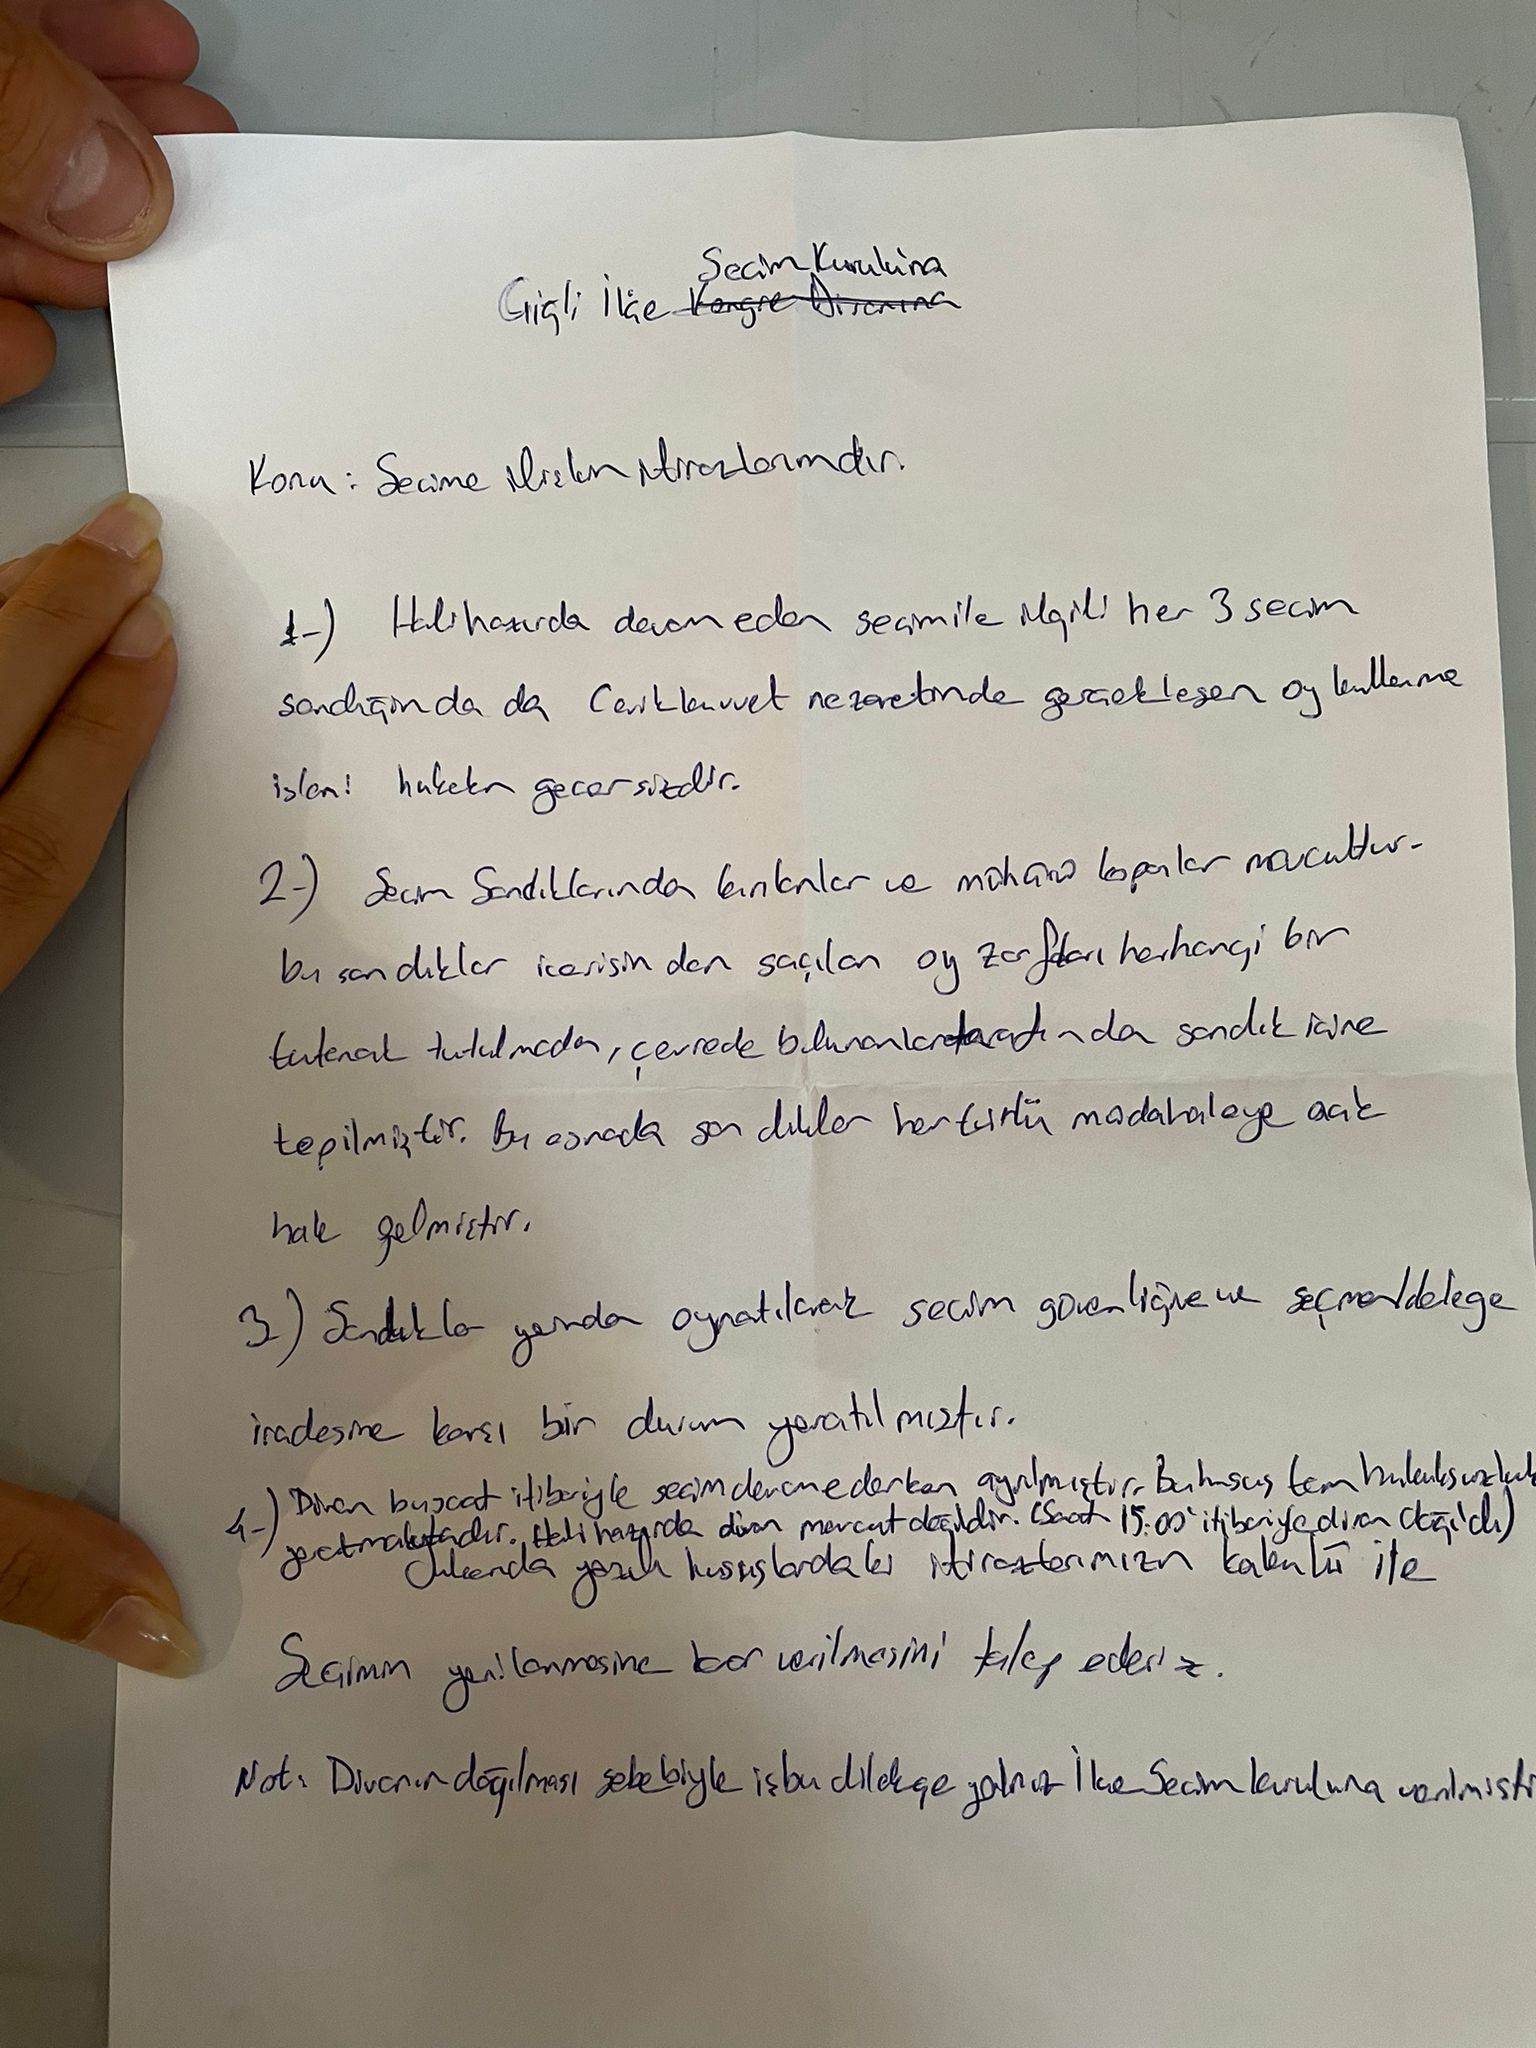 Seçim Kuruluna
Çiğli İlçe Kongre Divanına
Konu: Seçime ilişkin itirazlarımdır.
1-) Halihazırda devam eden seçim ile ilgili her 3 seçim
sandığında da Çevik kuvvet nezaretinde gerçekleşen oy kullanma
işlemi hukuken geçersizdir.
2-) Seçim Sandıklarında kırılanlar ve mühürü kopanlar mevcuttur.
bu sandıklar içerisinden saçılan oy zarfları herhangi bir
tutanak tutulmadan, çevrede bulunanlar tarafında sandık içine
tepilmiştir. Bu esnada sandıklar her türlü müdahaleye açık
hale gelmiştir.
3) Sandıklar yerinden oynatılarak seçim güvenliğine ve seçmen/delege
iradesine karşı bir durum yaratılmıştır.
4-) Divan bu saat itibariyle seçim devam ederken ayrılmıştır. Bu husus tam hukuksuzluk
yaratmaktadır. Halihazırda divan mevcut değildir. (Saat 15:00 itibariye divan dağıldı)
Yukarıda yazılı hususlardaki itirazlarımızın kabulü ile
Seçimin yenilenmesine karar verilmesini talep ederiz.
Not: Divanın dağılması sebebiyle işbu dilekçe yalnız İlçe Seçim kuruluna verilmişti